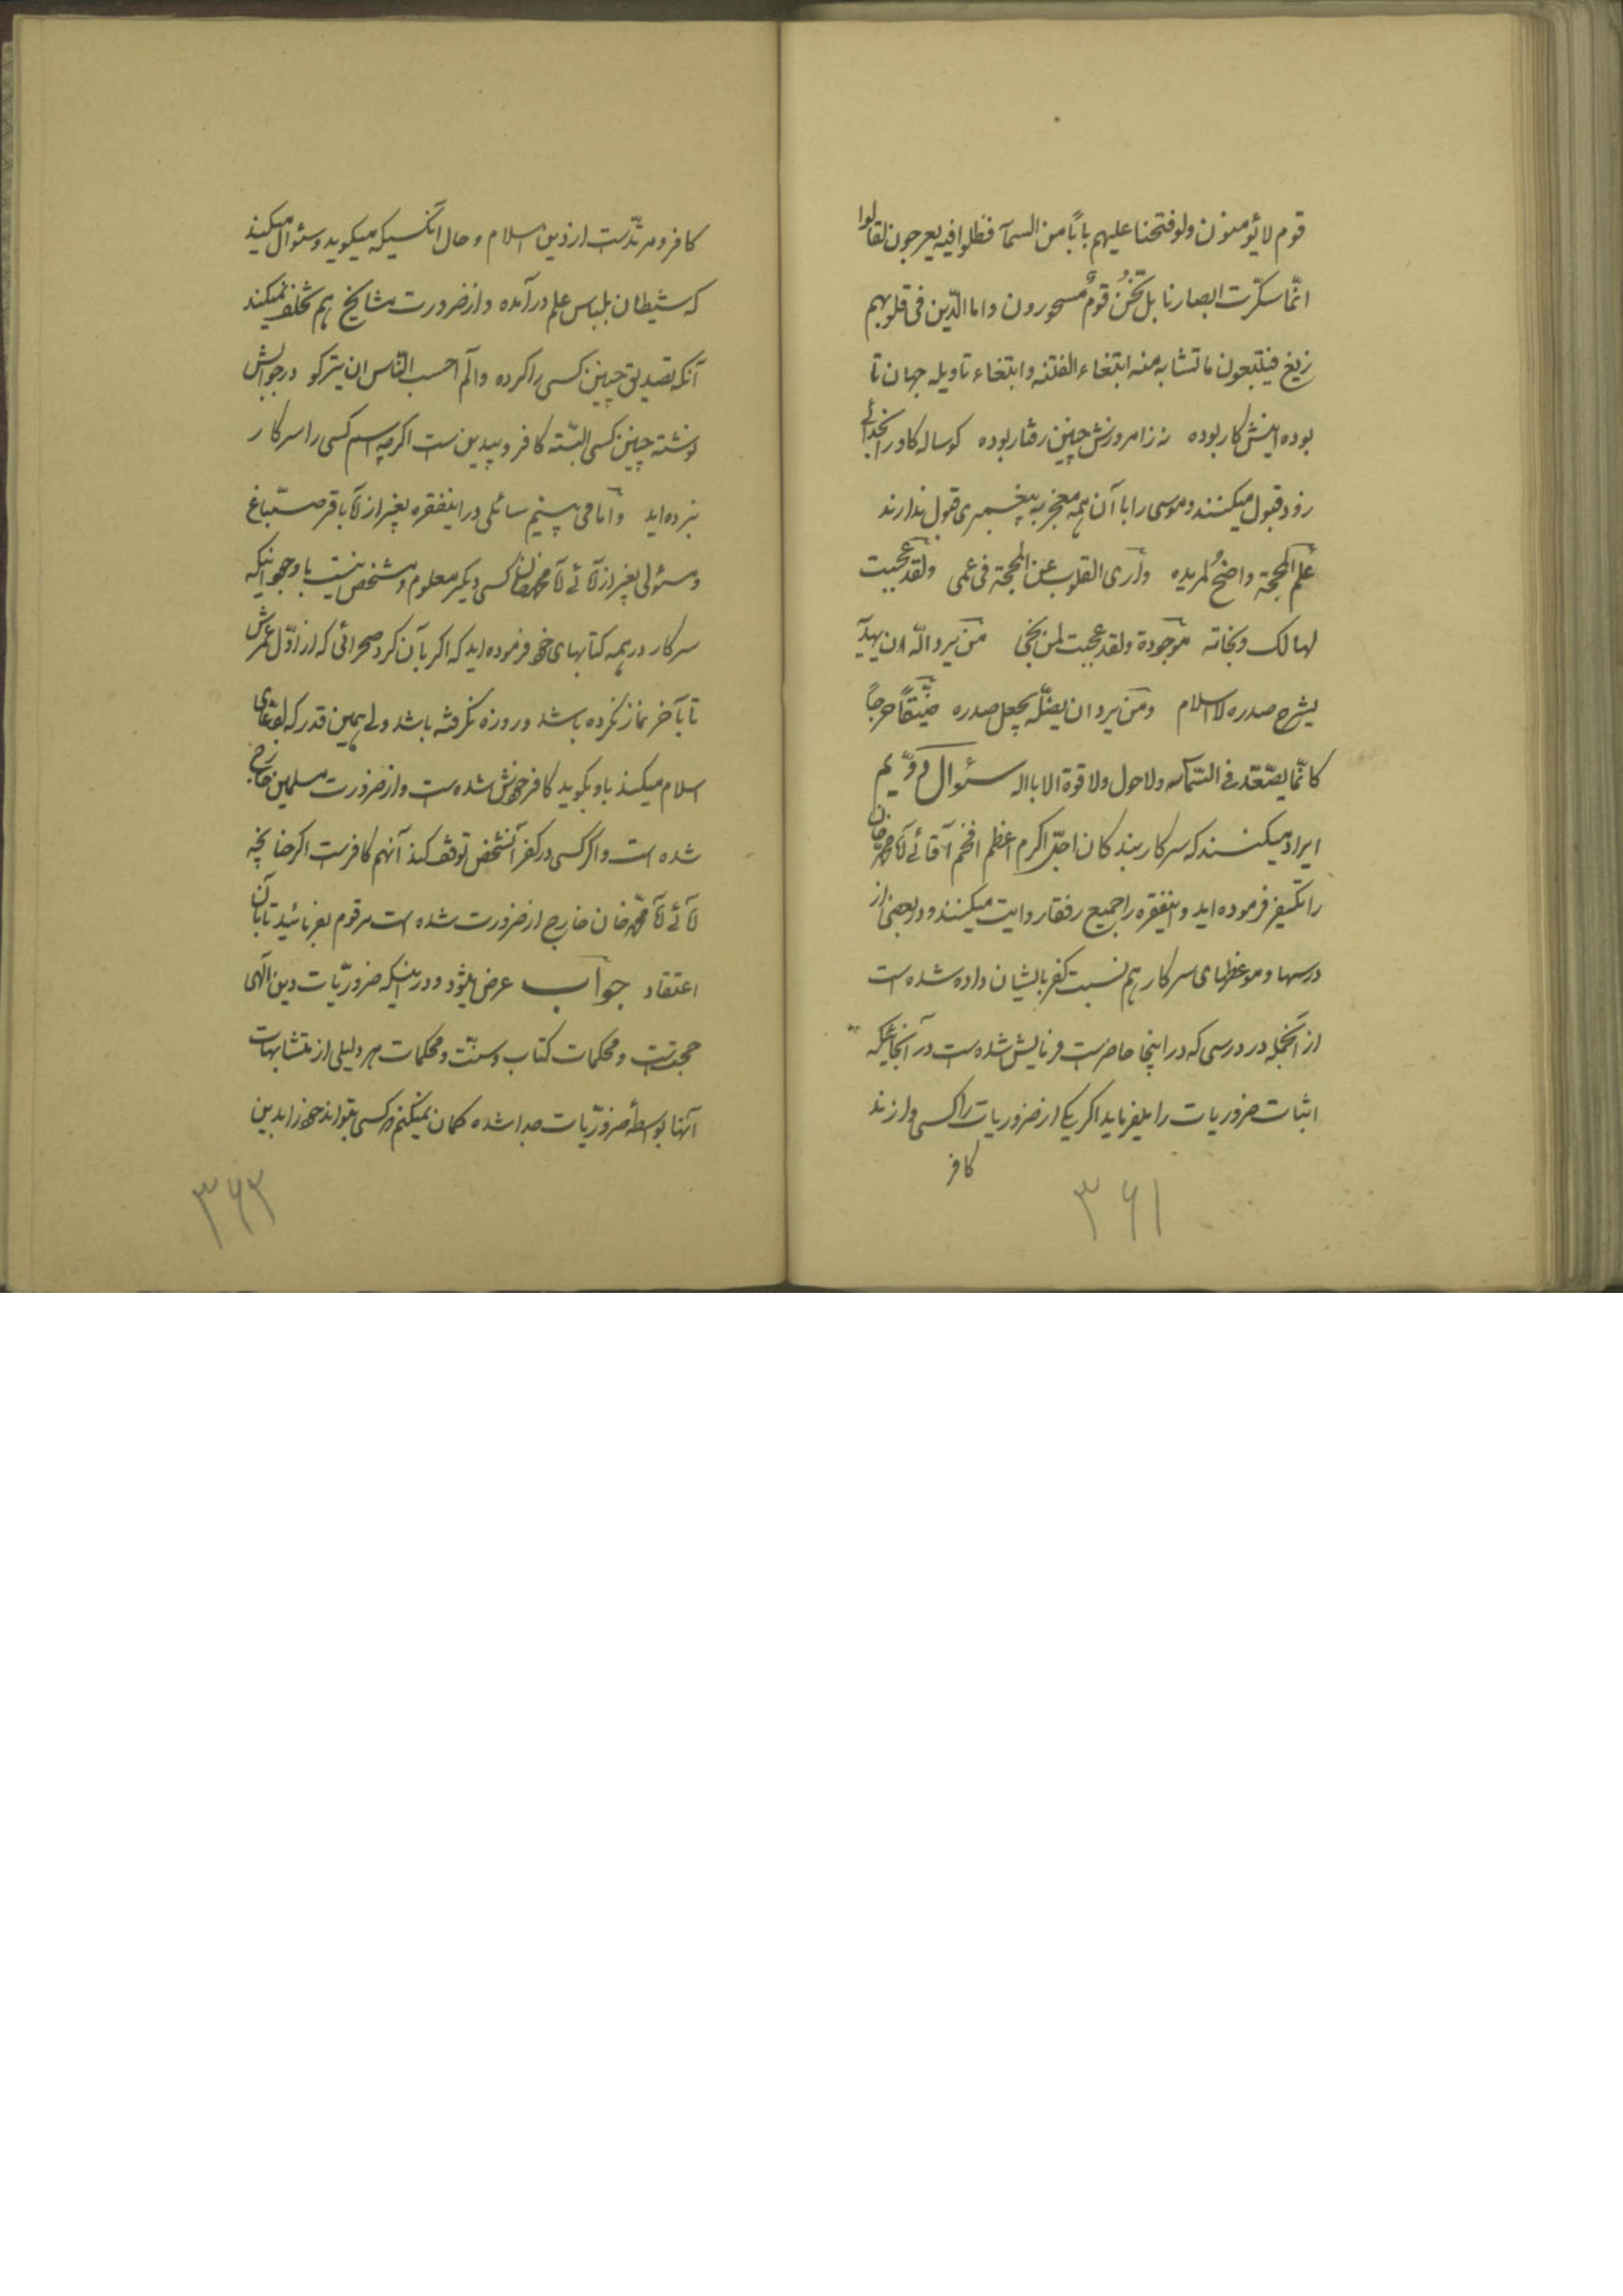 قوم لا یؤمنون ولو فتحنا علیهم باباً من السمآء فظلوا فیه یعرجون لقالوا
انّما سکّرت ابصارنا بل نحنُ قومٌ مسحورون واما الّذین فی قلوبهم
زیغ فیتبعون ما تشابه منه ابتغاء الفتنه و ابتغاء تاویله جهان تا
بوده اینش کار بوده نه زامروزش چنین رفتار بوده کوساله کاو را بخدائی
زود قبول میکنند و موسی را با آن همه معجز به پیغمبری قبول ندارند
علم المحجة واضحٌ لمریده واری القلوب عن المحجة فی عمی ولقد عجبت
لهالک ونجاته موجودة ولقد عجبت لمن نجی من یرد اللّه ان یهدیه
یشرح صدره للاسلام ومن یرد ان یضلّه یجعل صدره ضیّقاً حرجاً
کانّما یصّعّد فی السّمآء ولا حول ولا قوة الا بالله سئوال دوّیم
ایراد میکنند که سرکار بندکان اجلّ اکرم اعظم افخم آقائی آقا محمد خان
را تکفیر فرموده اید و اینفقره را جمیع رفقا روایت میکنند و در بعضی از
درسها و موعظهای سرکار هم نسبت کفر بایشان داده شده است
از آنجمله در درسی که در اینجا حاضر است فرمایش شده است در آنجائیکه
اثبات ضروریات را میفرماید اکر یکی از ضروریات را کسی وازند
کافر
۳۶۱
کافر و مرتدّست از دین اسلام و حال آنکسیکه میکوید و سئوال میکند
که شیطان بلباس علم درآمده و از ضرورت مشایخ هم تخلف نمیکند
آنکه تصدیق چنین کسی را کرده و الم احسب النّاس ان یترکو درجوابش
نوشته چنین کسی البتّه کافر و بیدین ست اکرچه اسم کسی را سرکار
نبرده اید و اما می بینیم سائلی در اینفقره بغیر از آقا باقر صبّاغ
و مسئولی بغیر از آقائی آقا محمد خان کسی دیکر معلوم و مشخص نیست با وجود اینکه
سرکار در همه کتابهای خود فرموده اید که اکر بآن کرد صحرائی که از اوّل عمرش
تا بآخر نماز نکرده باشد و روزه نکرفته باشد ولی همین قدر که ادعای
اسلام میکند باو بکوید کافر خودش شده ست و از ضرورت مسلمین خارج
شده است و اکر کسی در کفر آنشخص توقف کند آنهم کافرست اکر چنانچه
آقائی آقا محمّد خان خارج از ضرورت شده است مرقوم بفرمائید تا بآن
اعتقاد جواب عرض میشود و در اینکه ضروریّات دین الٓهی
حجتست و محکمات کتاب و سنّت و محکمات هر دلیلی از متشابهات
آنها بواسطهٔ ضروریّات جدا شده کمان نمیکنم که کسی بتواند خود را بدین
۳۶۳